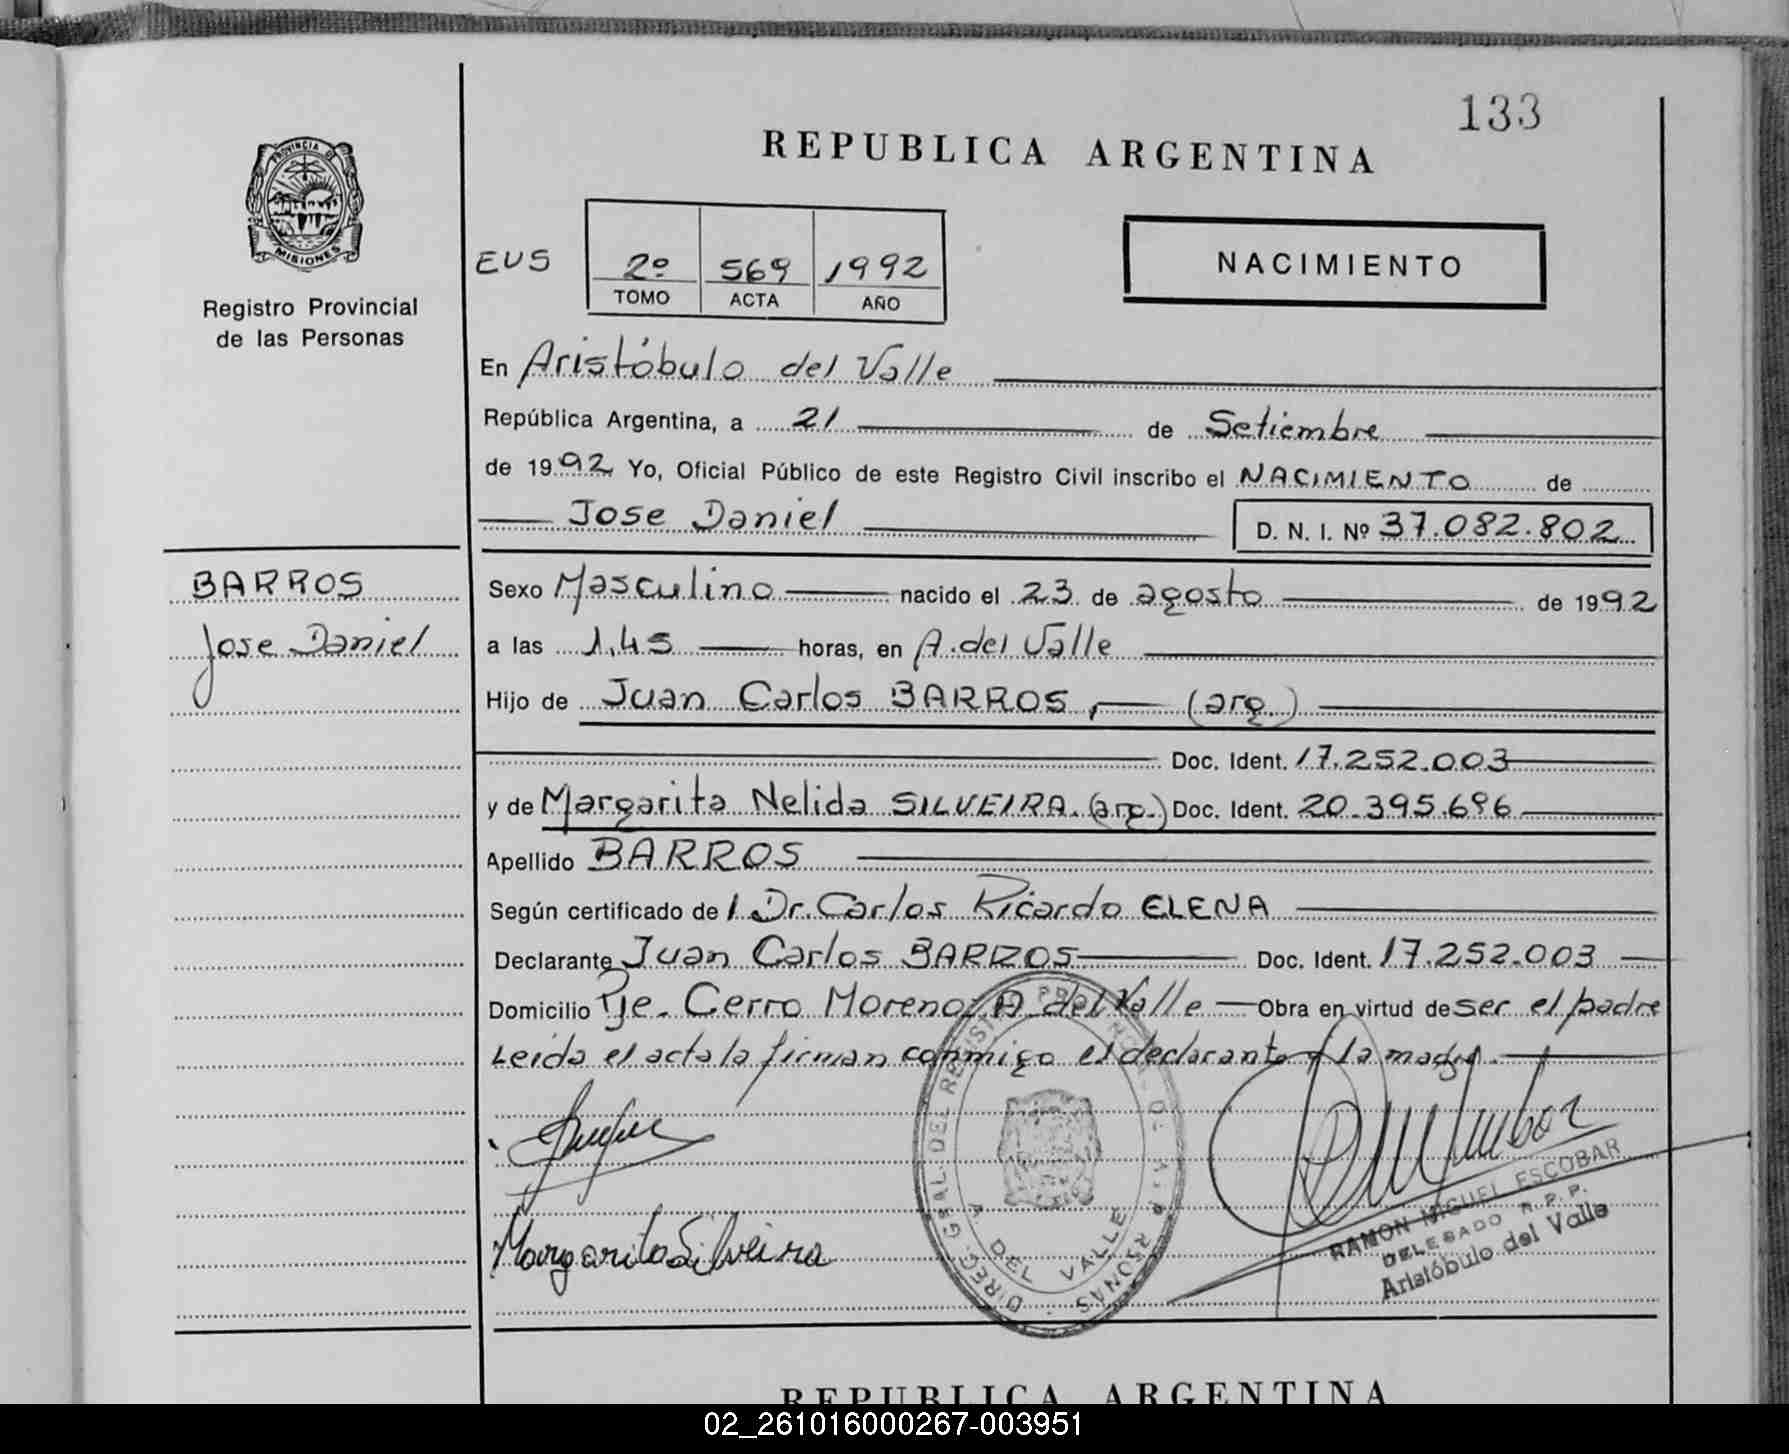 133
REPUBLICA ARGENTINA
PROVINCIA DE
MISIONES
Registro Provincial
de las Personas
EUS
2º 569 1992
TOMO ACTA AÑO
NACIMIENTO
En Aristóbulo del Valle
República Argentina, a 21 de Setiembre
de 1992 Yo, Oficial Público de este Registro Civil inscribo el NACIMIENTO de
Jose Daniel D. N. I. Nº 37.082.802
BARROS
Jose Daniel
Sexo Masculino nacido el 23 de agosto de 1992
a las 1,45 horas, en A. del Valle
Hijo de Juan Carlos BARROS, (arg.)
Doc. Ident. 17.252.003
y de Margarita Nelida SILVEIRA. (arg.) Doc. Ident. 20.395.696
Apellido BARROS
Según certificado de 1 Dr. Carlos Ricardo ELENA
Declarante Juan Carlos BARROS Doc. Ident. 17.252.003
Domicilio Pje. Cerro Moreno, A del Valle Obra en virtud de ser el padre
Leida el acta la firman conmigo el declarante y la madre.
Margarita Silveira
A. DEL VALLE
RAMON MIGUEL ESCOBAR
DELEGADO R.P.P.
Aristóbulo del Valle
REPUBLICA ARGENTINA
02_261016000267-003951